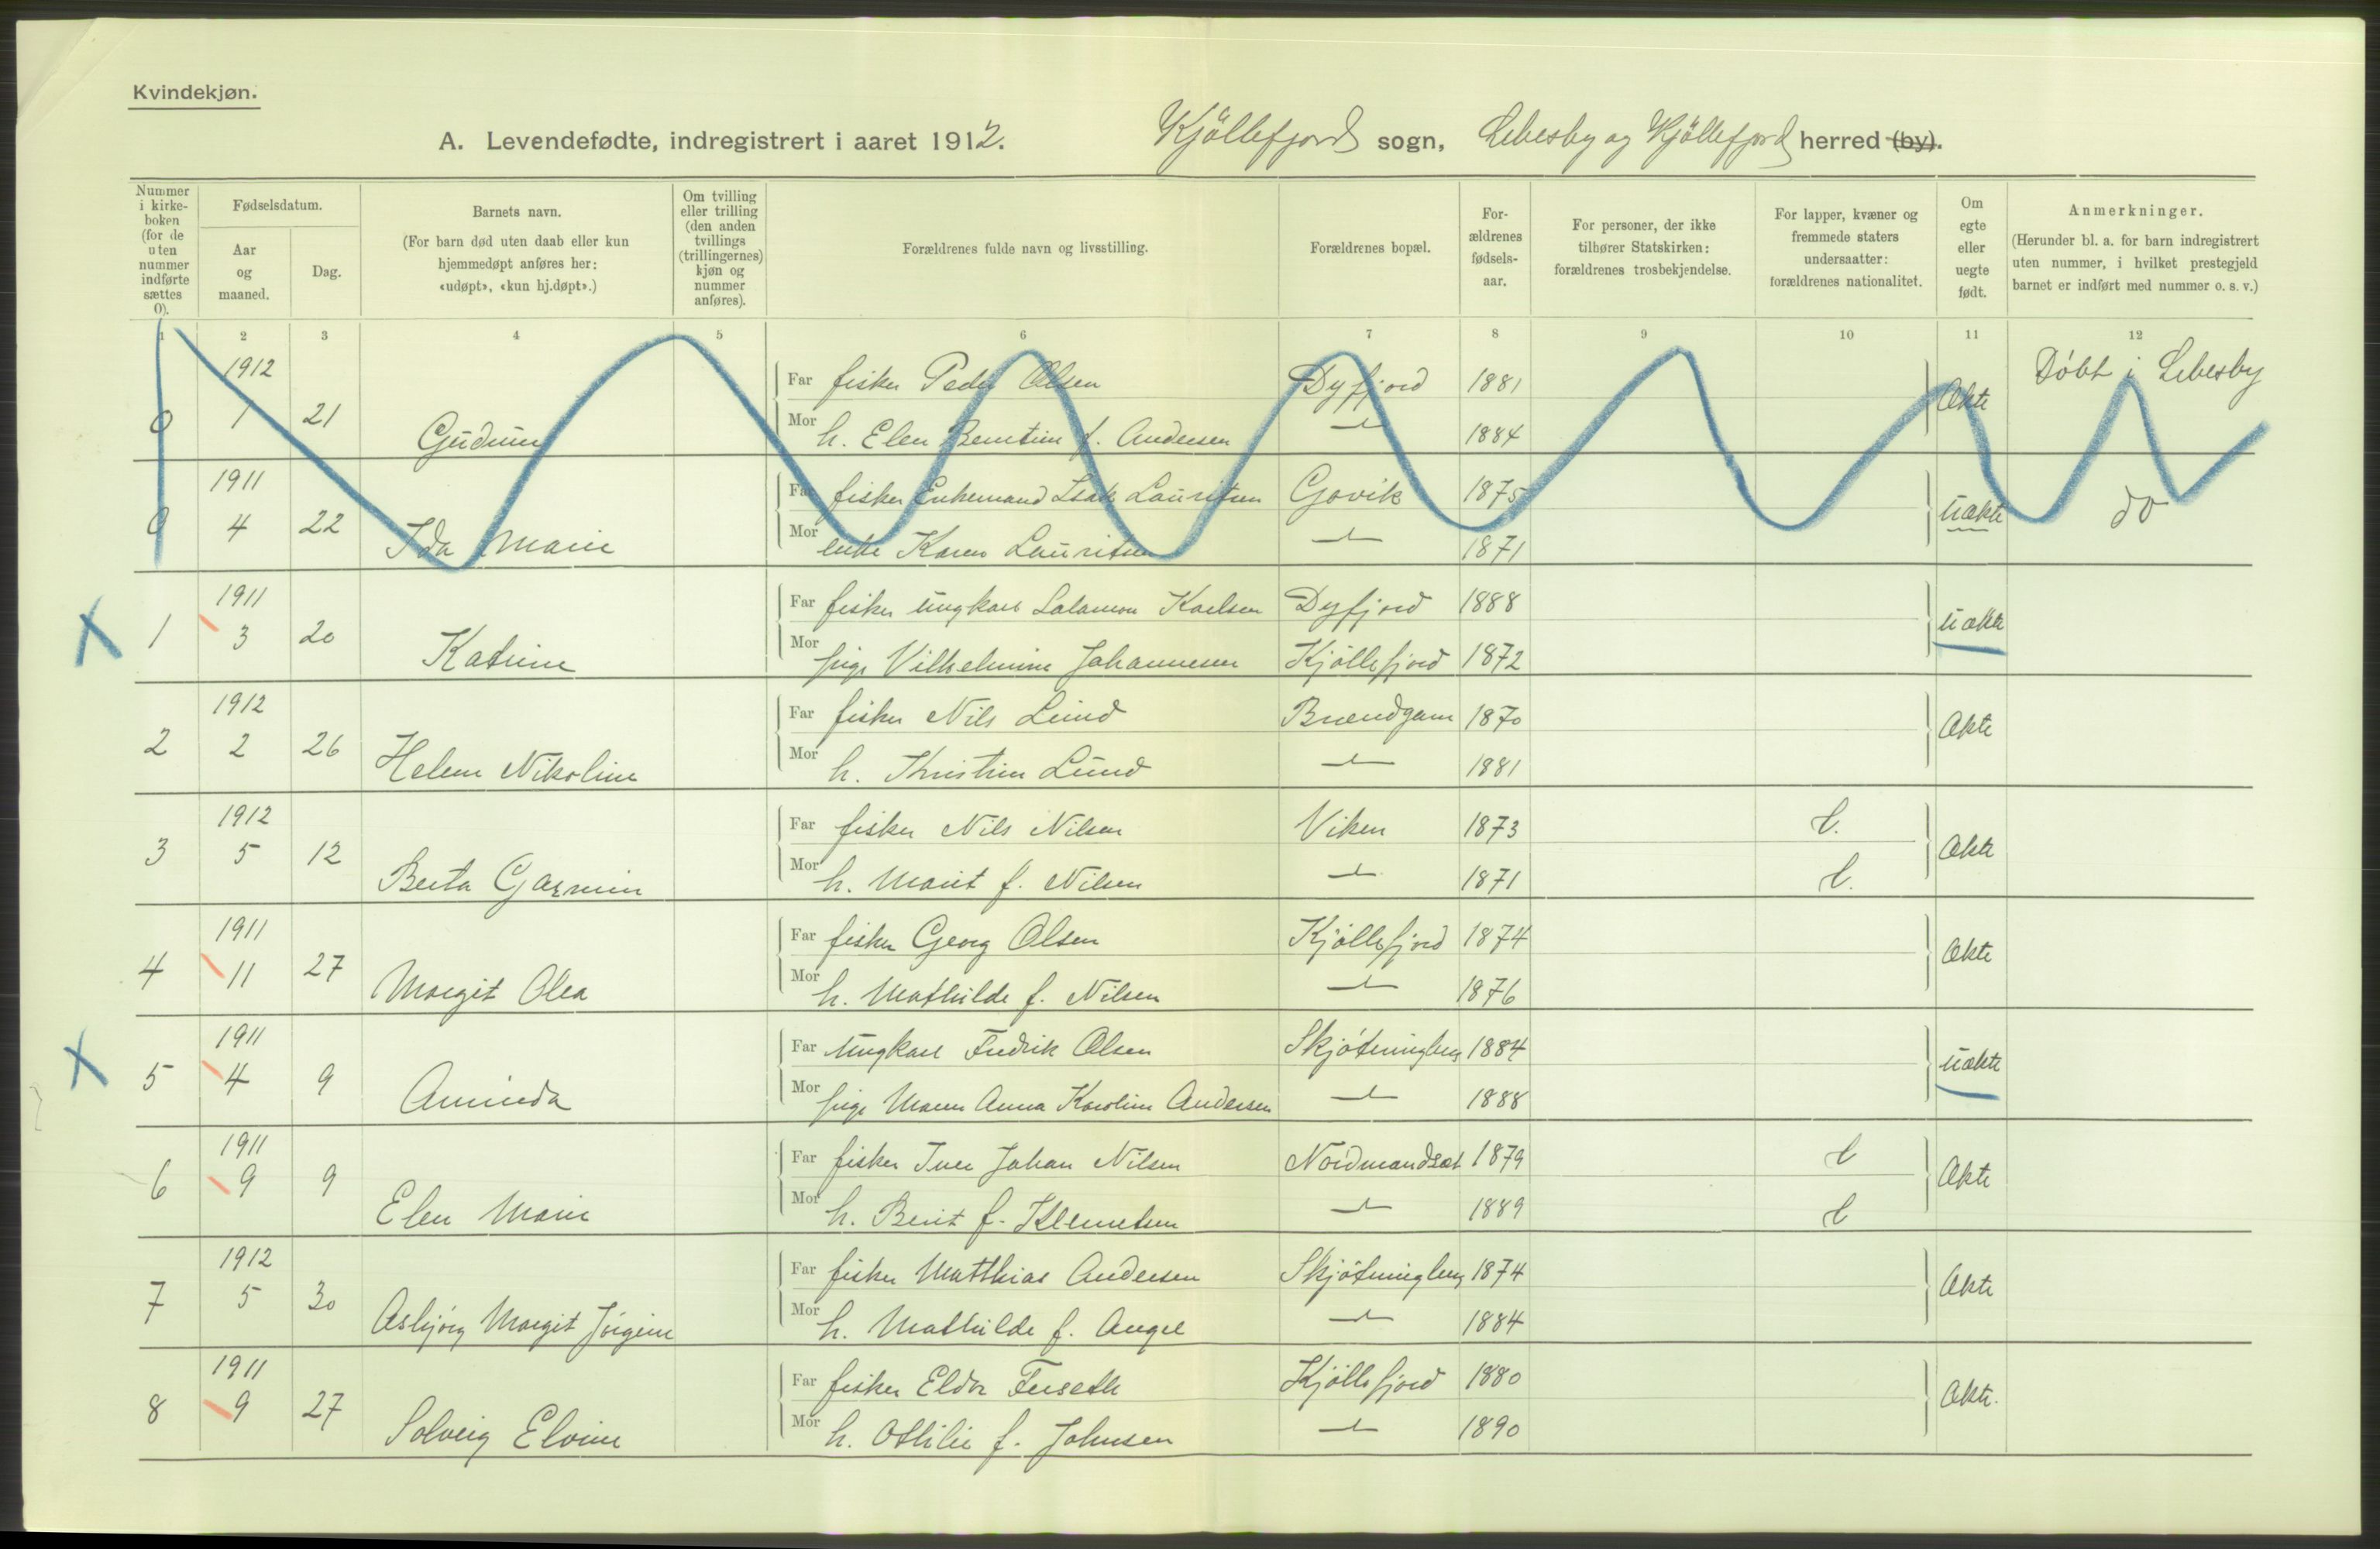 Kvindekjøn.
A. Levendefødte, indregistrert i aaret 1912. Kjöllefjord sogn, Lebesby og Kjöllefjord herred (by).
Nummer i kirke-boken (for de uten nummer indførte sættes 0).
Fødselsdatum.
Aar og maaned.
Dag.
Barnets navn.
(For barn død uten daab eller kun hjemmedøpt anføres her: «udøpt», «kun hj.døpt».)
Om tvilling eller trilling (den anden tvillings (trillingernes) kjøn og nummer anføres).
Forældrenes fulde navn og livsstilling.
Forældrenes bopæl.
For-ældrenes fødsels-aar.
For personer, der ikke tilhører Statskirken: forældrenes trosbekjendelse.
For lapper, kvæner og fremmede staters undersaatter: forældrenes nationalitet.
Om egte eller uegte født.
Anmerkninger.
(Herunder bl. a. for barn indregistrert uten nummer, i hvilket prestegjeld barnet er indført med nummer o. s. v.)
1 2 3 4 5 6 7 8 9 10 11 12
1912 Far fisker Peder Olsen Dyfjord 1881 Døbt i Lebesby
0 1 21 Gudrun Mor h. Elen f. Andersen 1884 Ækte
1911 Far fisker Enkemand Isak Lauritsen Govik 1875
0 4 22 Ida Marie Mor enke Karen Lauritsen 1871 uækte do
1911 Far fisker ungkarl Salamon Karlsen Dyfjord 1888
1 3 20 Katrine Mor pige Vilhelmine Johannesen Kjöllefjord 1872 uækte
1912 Far fisker Nils Lund 1870
2 2 26 Helene Nikoline Mor h. Kristine Lund 1881 Ækte
1912 Far fisker Nils Nilsen Viken 1873 l.
3 5 12 Berta Mor h. Marit f. Nilsen 1871 l. Ækte
1911 Far fisker Georg Olsen Kjöllefjord 1874
4 11 27 Margit Olea Mor h. Mathilde f. Nilsen 1876 Ækte
1911 Far ungkarl Fredrik Olsen Skjøtningberg 1884
5 4 9 Aminda Mor pige Maren Anna Karoline Andersen 1888 uækte
1911 Far fisker Iver Johan Nilsen Nordmandset 1879 l
6 9 9 Elen Marie Mor h. Berit f. Klemetsen 1889 l Ækte
1912 Far fisker Matthias Andersen Skjøtningberg 1874
7 5 30 Asbjörg Margit Jörgine Mor h. Mathilde f. Angel 1884 Ækte
1911 Far fisker Eldor Kjöllefjord 1880
8 9 27 Solveig Elvine Mor h. Ottilie f. Johnsen 1890 Ækte.